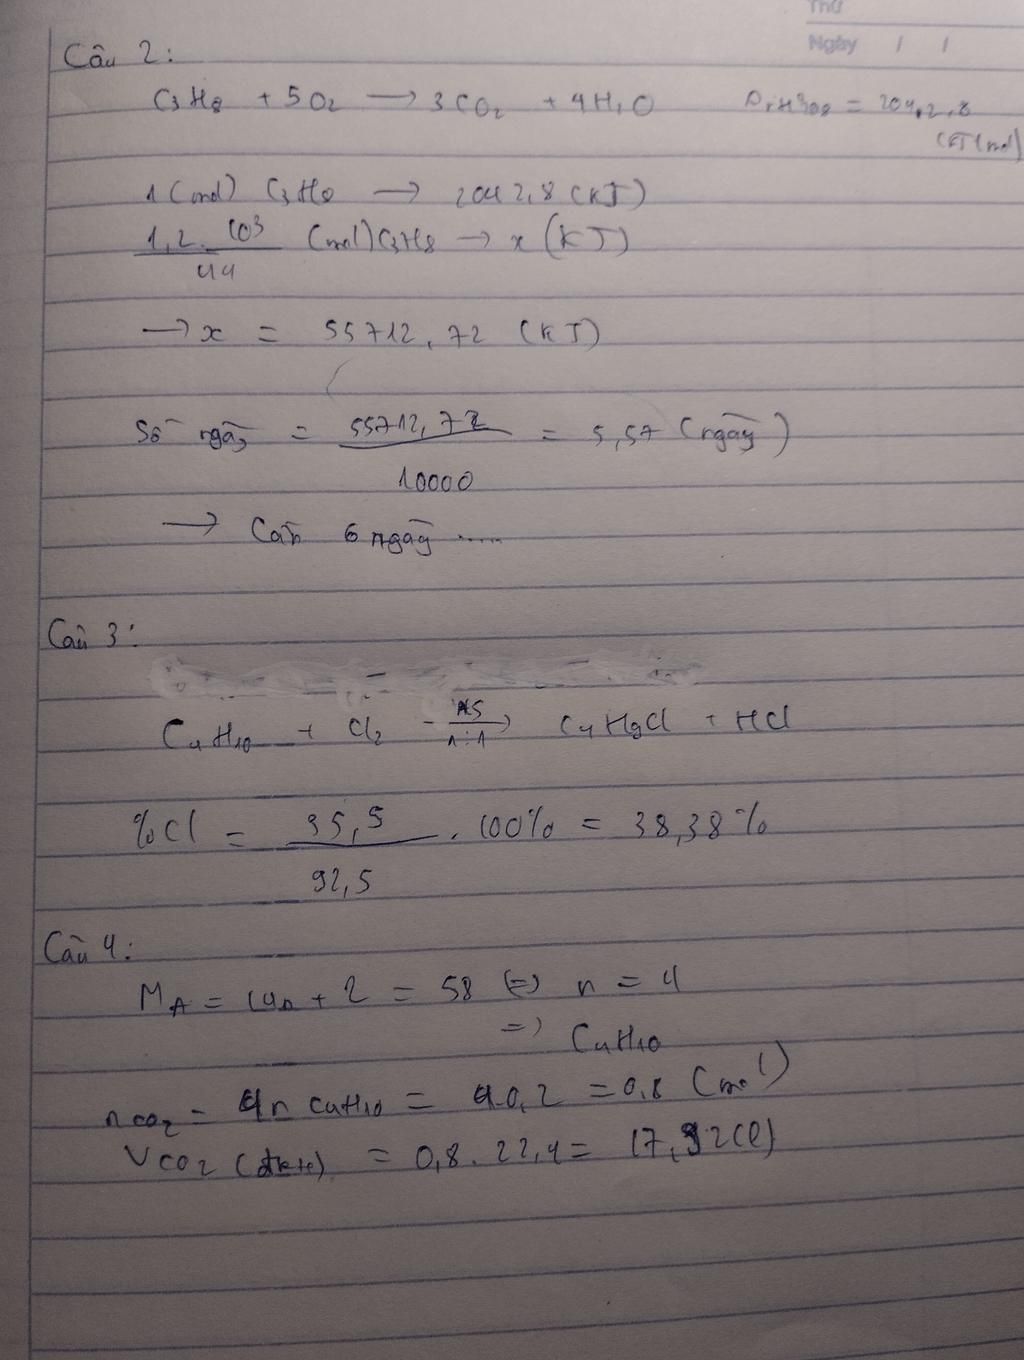 Thứ
Ngày / /
Câu 2:
C3H8 + 5O2 → 3CO2 + 4H2O ΔrH298 = 2042,8
(KJ/mol)
1 (mol) C3H8 → 2042,8 (KJ)
1,2.10³/44 (mol) C3H8 → x (KJ)
→ x = 55712,72 (KJ)
Số ngày = 55712,72/10000 = 5,57 (ngày)
→ Cần 6 ngày .....
Câu 3:
C4H10 + Cl2 -AS/1:1→ C4H9Cl + HCl
%Cl = 35,5/92,5 . 100% = 38,38%
Câu 4:
MA = 14n + 2 = 58 (=) n = 4
=) C4H10
nCO2 = 4n C4H10 = 4.0,2 = 0,8 (mol)
VCO2 (đktc) = 0,8 . 22,4 = 17,92(l)